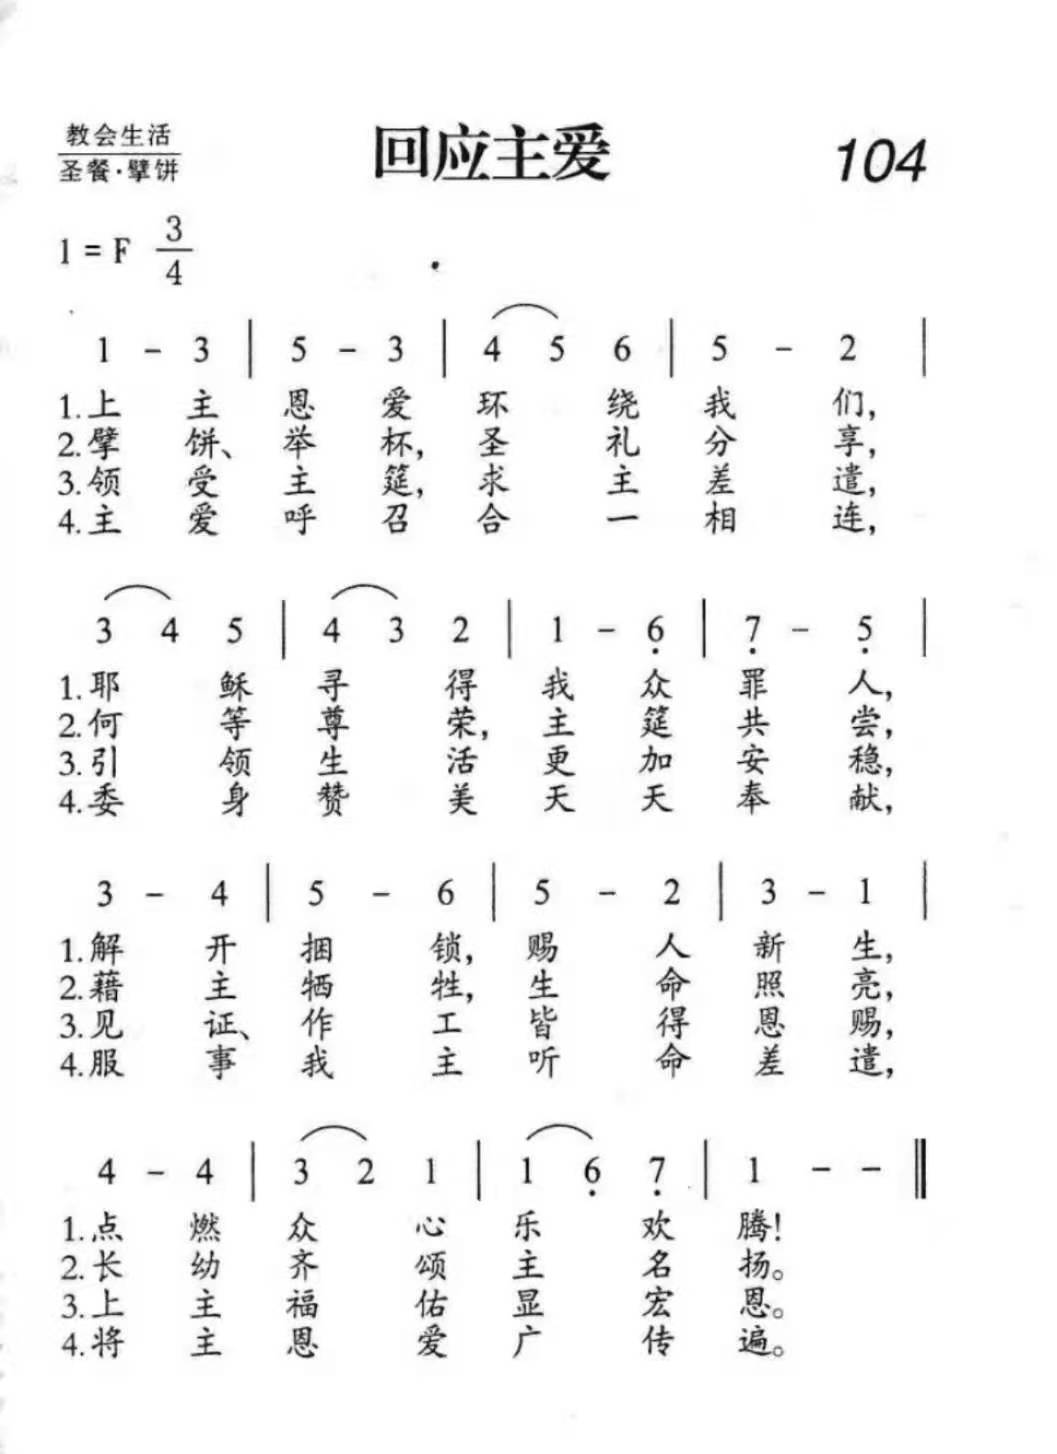 教会生活
圣餐·擘饼
回应主爱
104
1 = F 3/4
1 - 3 | 5 - 3 | 4 5 6 | 5 - 2 |
1.上主恩爱环绕我们,
2.擘饼、举杯,圣礼分享,
3.领受主筵,求主差遣,
4.主爱呼召合一相连,
3 4 5 | 4 3 2 | 1 - 6̣ | 7̣ - 5̣ |
1.耶稣寻得我众罪人,
2.何等尊荣,主筵共尝,
3.引领生活更加安稳,
4.委身赞美天天奉献,
3 - 4 | 5 - 6 | 5 - 2 | 3 - 1 |
1.解开捆锁,赐人新生,
2.藉主牺牲,生命照亮,
3.见证、作工皆得恩赐,
4.服事我主听命差遣,
4 - 4 | 3 2 1 | 1 6̣ 7̣ | 1 - - ‖
1.点燃众心乐欢腾!
2.长幼齐颂主名扬。
3.上主福佑显宏恩。
4.将主恩爱广传遍。